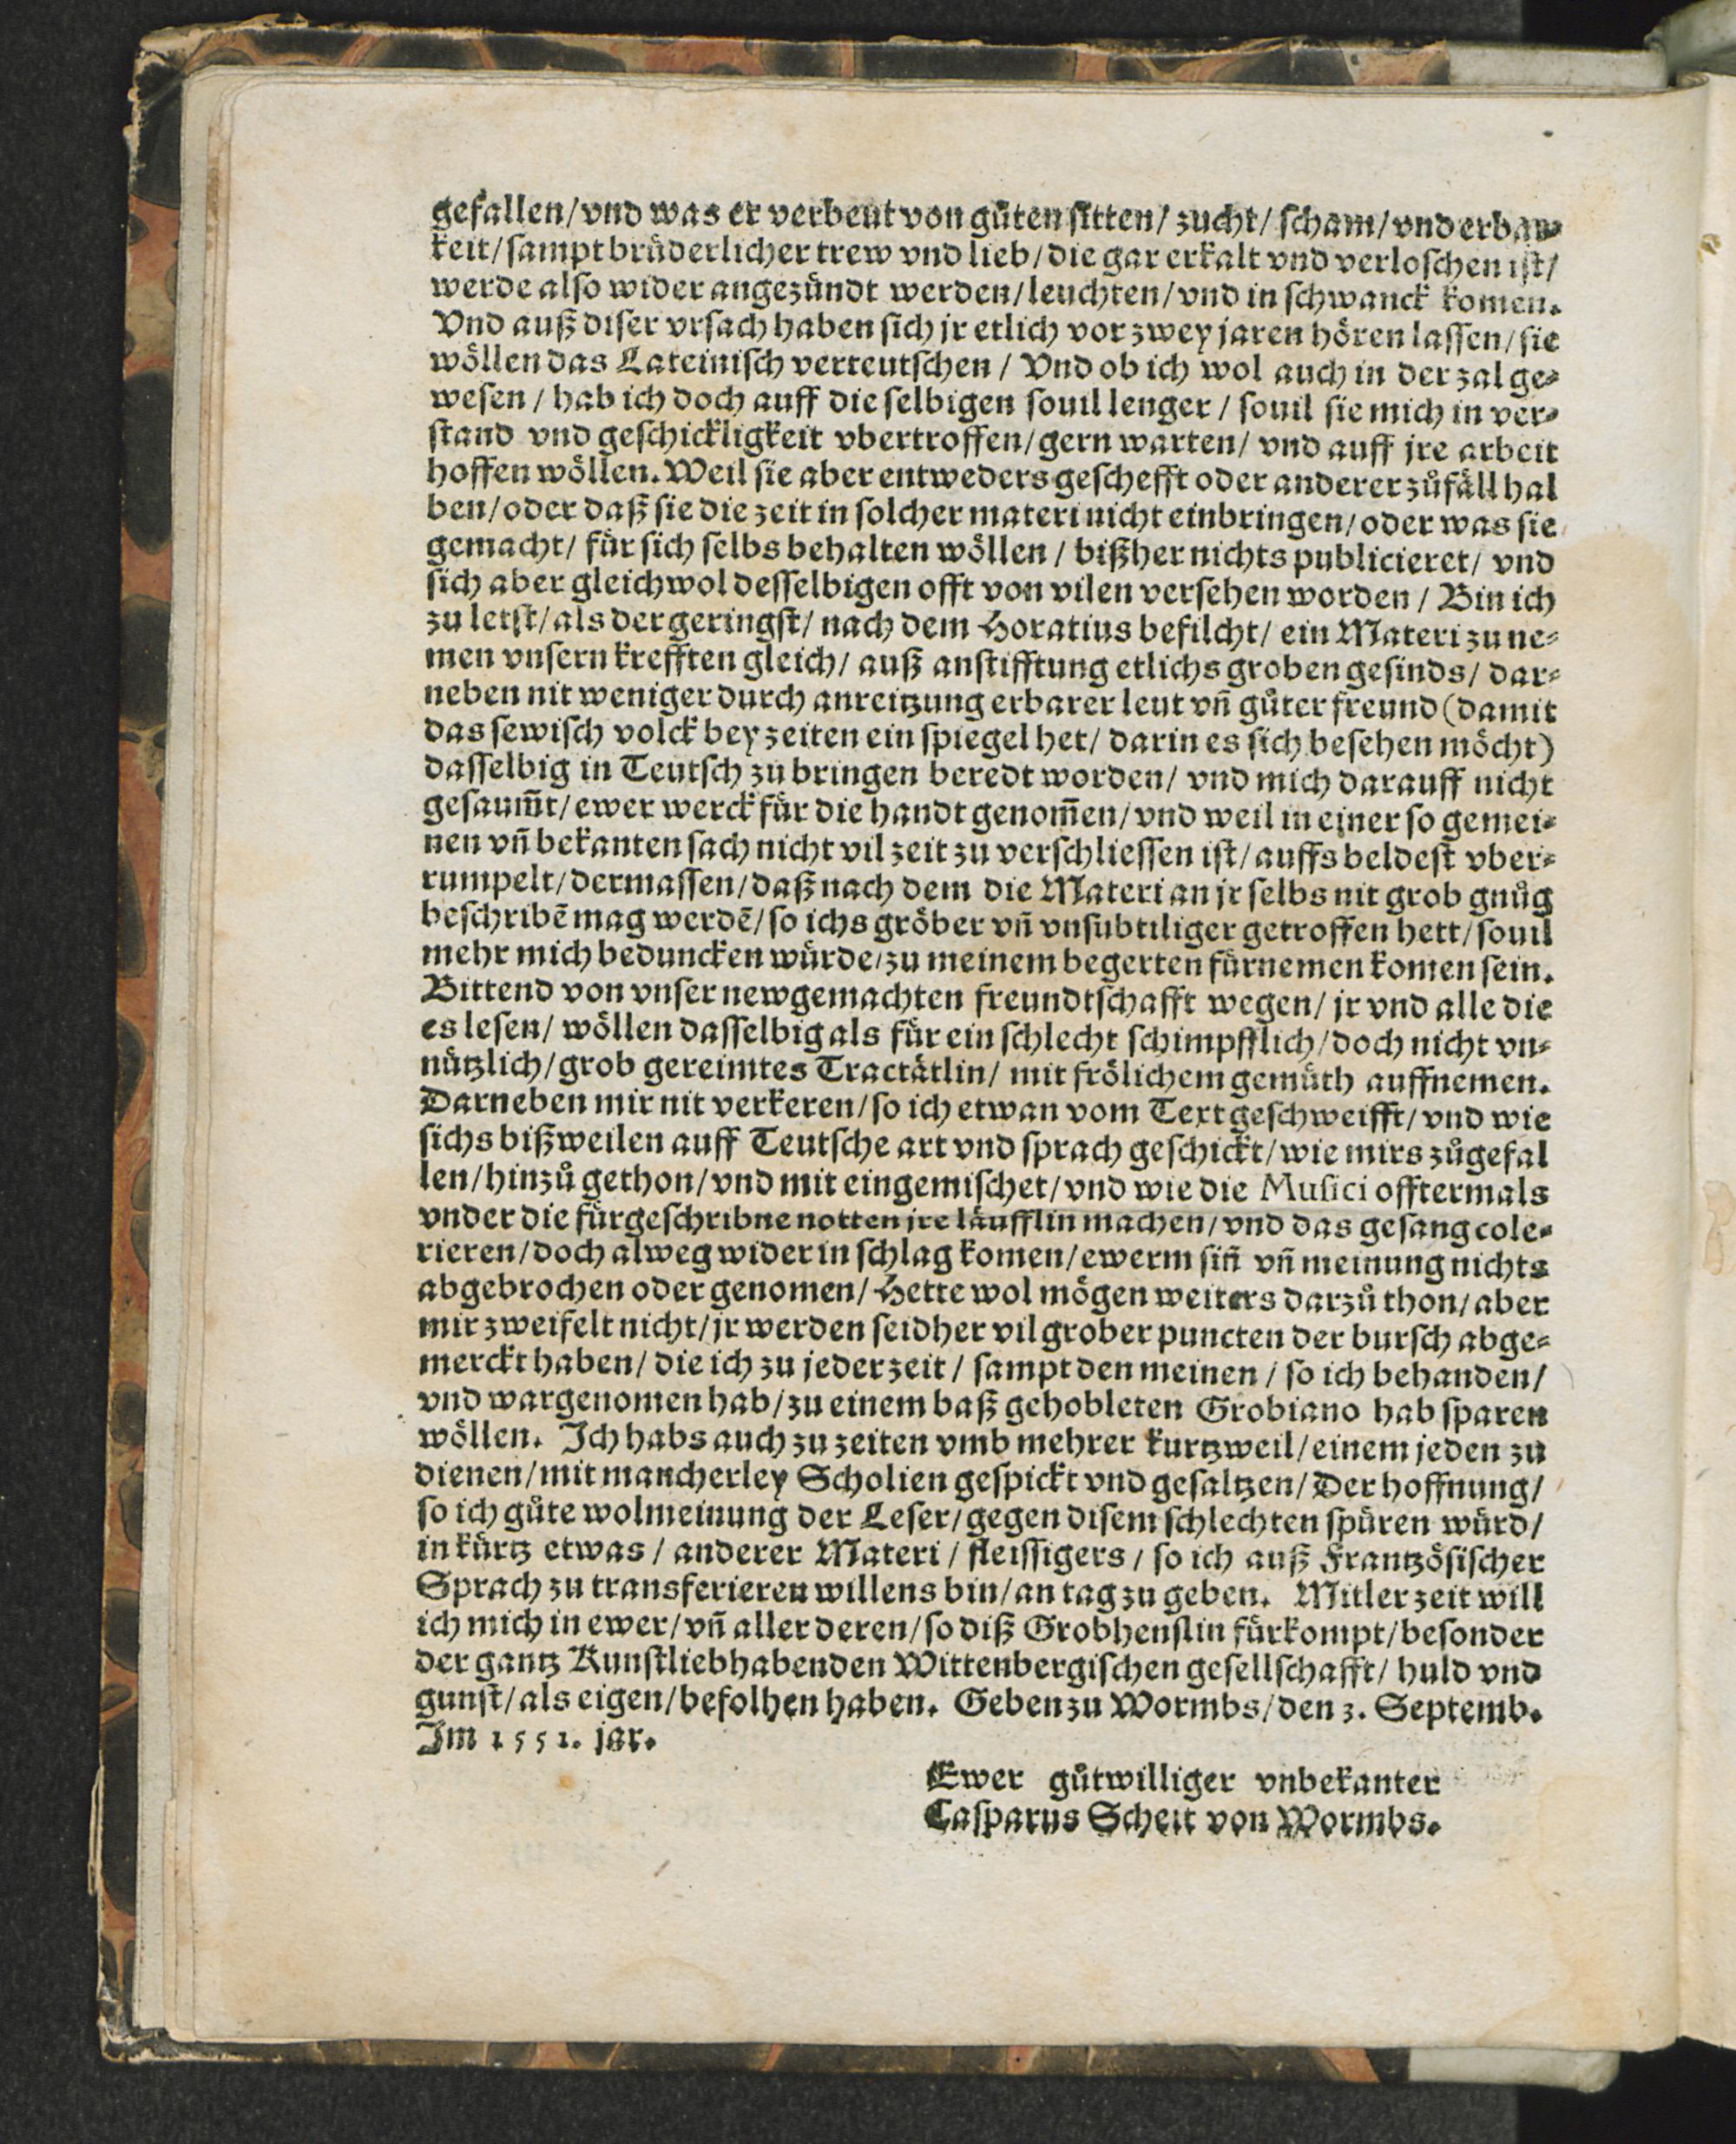 gefallen/vnd was er verbeut von gůten sitten/ zucht/ scham/ vnd erbar⸗
keit/sampt brůderlicher trew vnd lieb/die gar erkalt vnd verloschen ist/
werde also wider angezündt werden/leuchten/vnd in schwanck komen.
Vnd auß diser vrsach haben sich jr etlich vor zwey jaren hören lassen/sie
wöllen das Lateinisch verteutschen / Vnd ob ich wol auch in der zal ge⸗
wesen / hab ich doch auff die selbigen souil lenger / souil sie mich in ver⸗
stand vnd geschickligkeit vbertroffen/gern warten/ vnd auff jre arbeit
hoffen wöllen. Weil sie aber entweders geschefft oder anderer zůfäll hal
ben/oder daß sie die zeit in solcher materi nicht einbringen/oder was sie
gemacht/ für sich selbs behalten wöllen / bißher nichts publicieret/ vnd
sich aber gleichwol desselbigen offt von vilen versehen worden / Bin ich
zu letst/als der geringst/ nach dem Horatius befilcht/ ein Materi zu ne⸗
men vnsern krefften gleich/ auß anstifftung etlichs groben gesinds/ dar⸗
neben nit weniger durch anreitzung erbarer leut vñ gůter freund (damit
das sewisch volck bey zeiten ein spiegel het/ darin es sich besehen möcht)
dasselbig in Teutsch zu bringen beredt worden/ vnd mich darauff nicht
gesaum̃t/ewer werck für die handt genom̃en/vnd weil in einer so gemei⸗
nen vñ bekanten sach nicht vil zeit zu verschliessen ist/auffs beldest vber⸗
rumpelt/dermassen/daß nach dem die Materi an jr selbs nit grob gnůg
beschribẽ mag werdẽ/so ichs gröber vñ vnsubtiliger getroffen hett/souil
mehr mich beduncken würde/zu meinem begerten fürnemen komen sein.
Bittend von vnser newgemachten freundtschafft wegen/ jr vnd alle die
es lesen/ wöllen dasselbig als für ein schlecht schimpfflich/doch nicht vn⸗
nützlich/grob gereimtes Tractätlin/ mit frölichem gemüth auffnemen.
Darneben mir nit verkeren/so ich etwan vom Text geschweifft/vnd wie
sichs bißweilen auff Teutsche art vnd sprach geschickt/wie mirs zůgefal
len/hinzů gethon/vnd mit eingemischet/vnd wie die Musici offtermals
vnder die fürgeschribne notten jre läufflin machen/vnd das gesang cole⸗
rieren/doch alweg wider in schlag komen/ewerm siñ vñ meinung nichts
abgebrochen oder genomen/Hette wol mögen weiters darzů thon/aber
mir zweifelt nicht/jr werden seidher vil grober puncten der bursch abge⸗
merckt haben/ die ich zu jeder zeit/ sampt den meinen / so ich behanden/
vnd wargenomen hab/zu einem baß gehobleten Grobiano hab sparen
wöllen. Ich habs auch zu zeiten vmb mehrer kurtzweil/einem jeden zu
dienen/mit mancherley Scholien gespickt vnd gesaltzen/Der hoffnung/
so ich gůte wolmeinung der Leser/gegen disem schlechten spüren würd/
in kürtz etwas / anderer Materi / fleissigers / so ich auß Frantzösischer
Sprach zu transferieren willens bin/an tag zu geben. Mitler zeit will
ich mich in ewer/vñ aller deren/so diß Grobhenslin fürkompt/besonder
der gantz Kunstliebhabenden Wittenbergischen gesellschafft/ huld vnd
gunst/als eigen/befolhen haben. Geben zu Wormbs/den 3. Septemb.
Im 1551. jar.
Ewer gůtwilliger vnbekanter
Casparus Scheit von Wormbs.